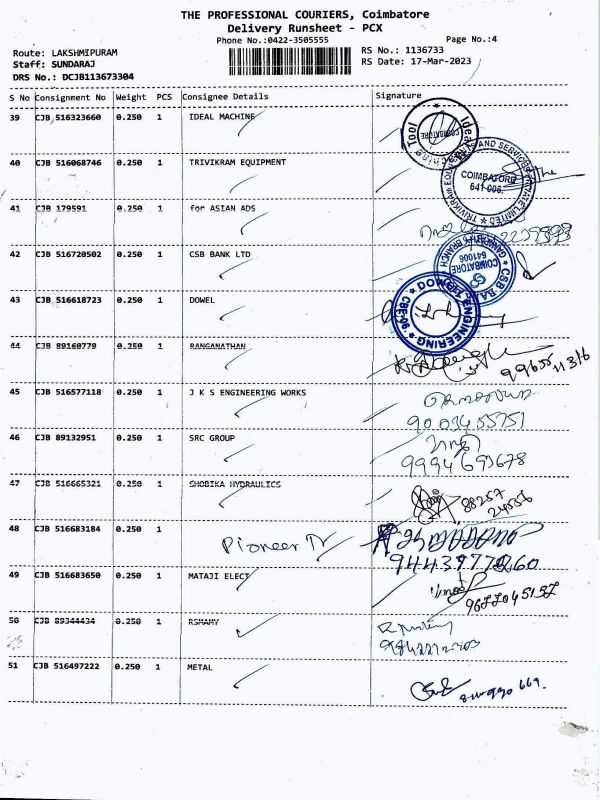 THE PROFESSIONAL COURIERS, Coimbatore
Delivery Runsheet - PCX
Phone No.:0422-3505555
Page No.:4
Route: LAKSHMIPURAM
RS No.: 1136733
Staff: SUNDARAJ
RS Date: 17-Mar-2023
DRS No.: DCJB113673304
S No Consignment No Weight PCS Consignee Details Signature
39 CJB 516323660 0.250 1 IDEAL MACHINE
40 CJB 516068746 0.250 1 TRIVIKRAM EQUIPMENT
COIMBATORE
641 006.
41 CJB 179591 0.250 1 for ASIAN ADS
42 CJB 516720502 0.250 1 CSB BANK LTD
COIMBATORE
641006
43 CJB 516618723 0.250 1 DOWEL
44 CJB 89160779 0.250 1 RANGANATHAN
45 CJB 516577118 0.250 1 J K S ENGINEERING WORKS
9003455751
46 CJB 89132951 0.250 1 SRC GROUP
9994693678
47 CJB 516665321 0.250 1 SHOBIKA HYDRAULICS
88257
24556
48 CJB 516683184 0.250 1 Pioneer
49 CJB 516683650 0.250 1 MATAJI ELECT
50 CJB 89344434 0.250 1 RSMAMY
51 CJB 516497222 0.250 1 METAL